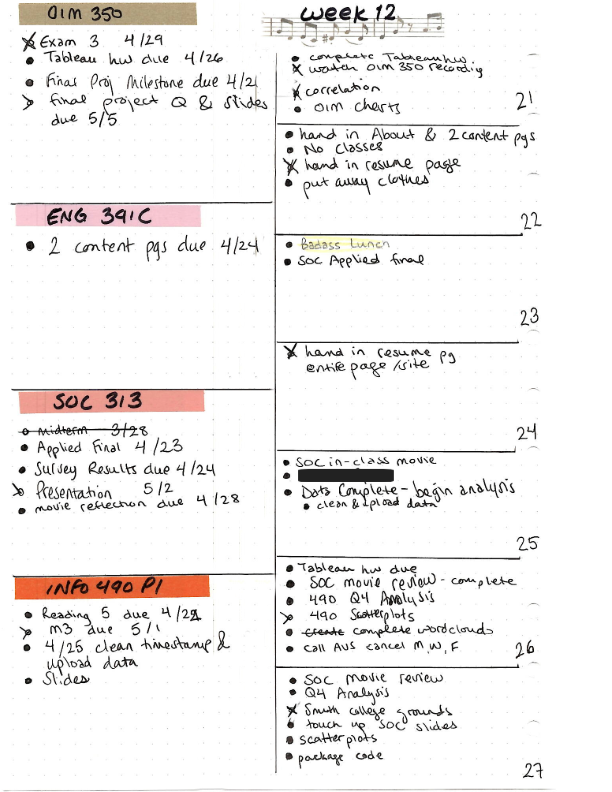 OIM 350
Exam 3 4/29
Tableau hw due 4/26
Final Proj Milestone due 4/21
final project Q & slides
due 5/5
ENG 391C
2 content pgs due 4/24
SOC 313
midterm 3/28
Applied Final 4/23
Survey Results due 4/24
Presentation 5/2
movie reflection due 4/28
INFO 490 PI
Reading 5 due 4/22
M3 due 5/1
4/25 clean timestamp &
upload data
Slides
Week 12
complete Tableau hw
watch OIM 350 recording
correlation
OIM charts
21
hand in About & 2 content pgs
No classes
hand in resume page
put away clothes
22
Badass Lunch
SOC Applied final
23
hand in resume pg
entire page /site
24
SOC in-class movie
Data Complete - begin analysis
clean & upload data
25
Tableau hw due
SOC movie review - complete
490 Q4 Analysis
490 Scatterplots
create complete wordclouds
call AVS cancel M, W, F
26
SOC movie review
Q4 Analysis
Smith college grounds
touch up SOC slides
scatterplots
package code
27